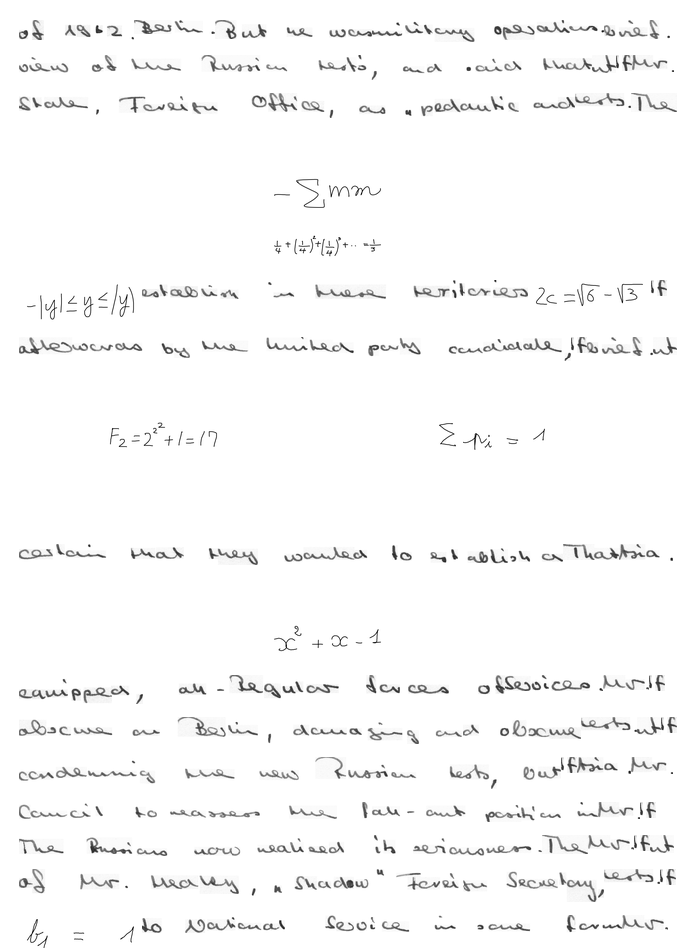 of 1962. Berlin. But he was military operations. brief.
view of the Russian tests, and said that
State, Foreign Office, as "pedantic and tests. The
- ∑ mm
1/4 + (1/4)^2 + (1/4)^3 + ... = 1/3
-|y| ≤ y ≤ |y| establish in these territories 2c = √6 - √3 If
afterwards by the United party candidate,
F_2 = 2^{2^2} + 1 = 17
∑ p_i = 1
certain that they wanted to establish a That
x^2 + x - 1
equipped, all-Regular forces of Services. Mr. If
obscure on Berlin, damaging and obscure tests.
condemning the new Russian tests, but Mr.
Council to reassess the fall-out position in Mr. If
The Russians now realised its seriousness. The Mr.
of Mr. Healey, "Shadow" Foreign Secretary, tests If
b_1 = 1 to National Service in some form Mr.